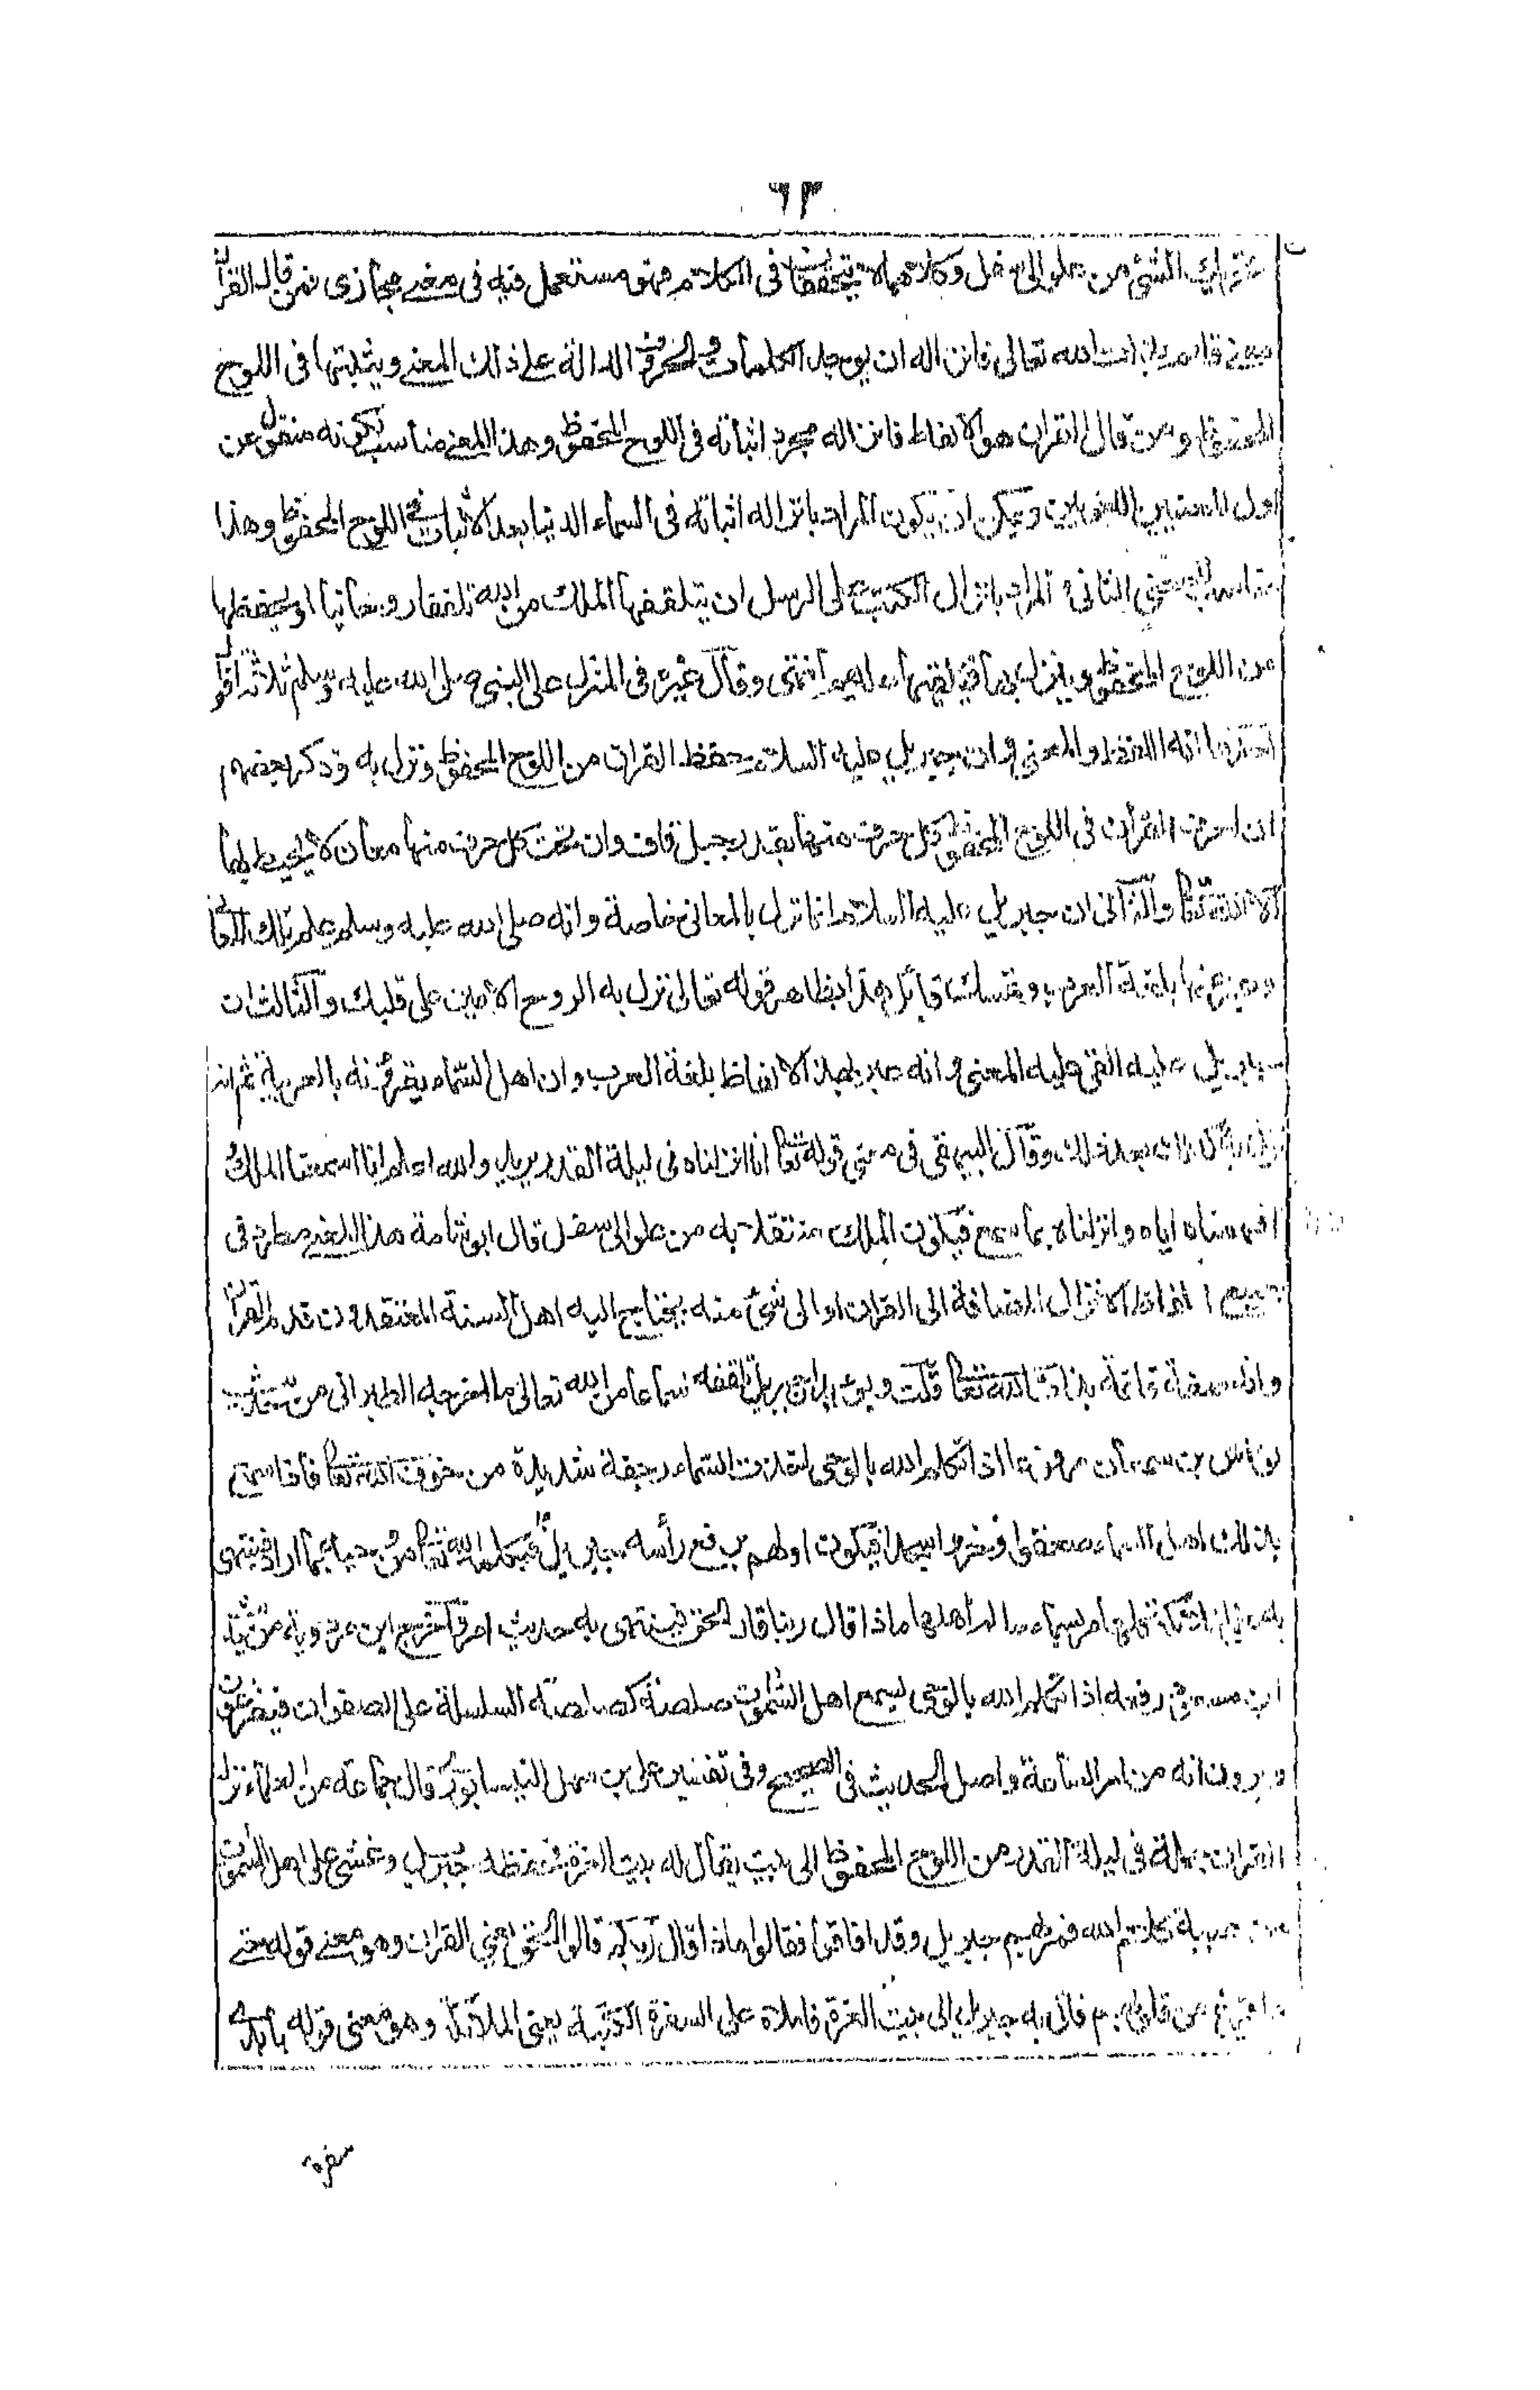 ٦٣
تحريك الشئ من علو الى سفل وكلاهما لا يتحققان فى الكلام فهو مستعمل فيه فى معنے مجازى فمن قال القرآن
معنے قائم بذات الله تعالى فانزاله ان يوجد الكلمات والحروف الدالة علے ذلك المعنے ويثبتها فى اللوح
المحفوظ ومن قال القران هو الالفاظ فانزاله مجرد اثباته فى اللوح المحفوظ وهذا المعنے مناسب لكونه منقول عن
اول المعنيين اللغويين ويمكن ان يكون المراد بانزاله اثباته فى السماء الدنيا بعد الاثبات فى اللوح المحفوظ وهذا
مناسب للمعنى الثانى والمراد بانزال الكتب على الرسل ان يتلقفها الملك من الله تلقفا روحانيا او يحفظها
من اللوح المحفوظ وينزل بها فيلقيها عليهم انتهى وقال غيره فى المنزل على النبى صلى الله عليه وسلم ثلاثة اقوال
احدها انه اللفظ والمعنى وان جبريل عليه السلام حفظ القران من اللوح المحفوظ ونزل به وذكر بعضهم
ان احرف القرآن فى اللوح المحفوظ كل حرف منها بقدر جبل قاف وان تحت كل حرف منها معان لا يحيط بها
الا الله تعا والثانى ان جبريل عليه السلام انما نزل بالمعانى خاصة وانه صلى الله عليه وسلم علم تلك المعانى
وعبر عنها بلغة العرب وتمسك قائل هذا بظاهر قوله تعالى نزل به الروح الامين على قلبك والثالث ان
جبريل عليه القى عليه المعنى وانه عبر بهذه الالفاظ بلغة العرب وان اهل السماء يقرؤنه بالعربية ثم انه
نزل به كذلك بعد ذلك وقال البيهقى فى معنى قوله تعا انا انزلناه فى ليلة القدر يريد والله اعلم انا اسمعنا الملك
وافهمناه اياه وانزلناه بما سمع فيكون الملك منتقلا به من علو الى سفل قال ابو شامة هذا المعنے مطرد فى
جميع الفاظ الانزال المضافة الى القران او الى شئ منه يحتاج اليه اهل السنة المعتقدون قدم القرآن
وانه صفة قائمة بذات الله تعا قلت ويؤيد ان جبريل تلقفه سماعا من الله تعالى ما اخرجه الطبرانى من حديث
نواس بن سمعان مرفوعا اذا تكلم الله بالوحى اخذت السماء رجفة شديدة من خوف الله تعا فاذا سمع
بذلك اهل السماء صعقوا وخروا سجدا فيكون اولهم يرفع رأسه جبريل فيكلمه الله تعا من وحيه بما اراد فينتهى
به على الملائكة فكلما مر بسماء سأله اهلها ماذا قال ربنا قال الحق فينتهى به حيث امر واخرج ابن مردوية من حديث
ابن مسعود رفعه اذا تكلم الله بالوحى سمع اهل السموات صلصلة كصلصلة السلسلة على الصفوان فيفزعون
ويرون انه من امر الساعة واصل الحديث فى الصحيح وفى تفسير على بن سهل النيسابورى قال جماعة من العلماء نزل
القران جملة فى ليلة القدر من اللوح المحفوظ الى بيت يقال له بيت العزة فحفظه جبريل وغشى على اهل السموات
من هيبة كلام الله فمر بهم جبريل وقد افاقوا فقالوا ماذا قال ربكم قالوا الحق يعنى القران وهو معنے قوله حتى
اذا فزع عن قلوبهم فاتى به جبريل الى بيت العزة فاملاه على السفرة الكتبة يعنى الملائكة وهو معنى قوله بايدى
سفرة